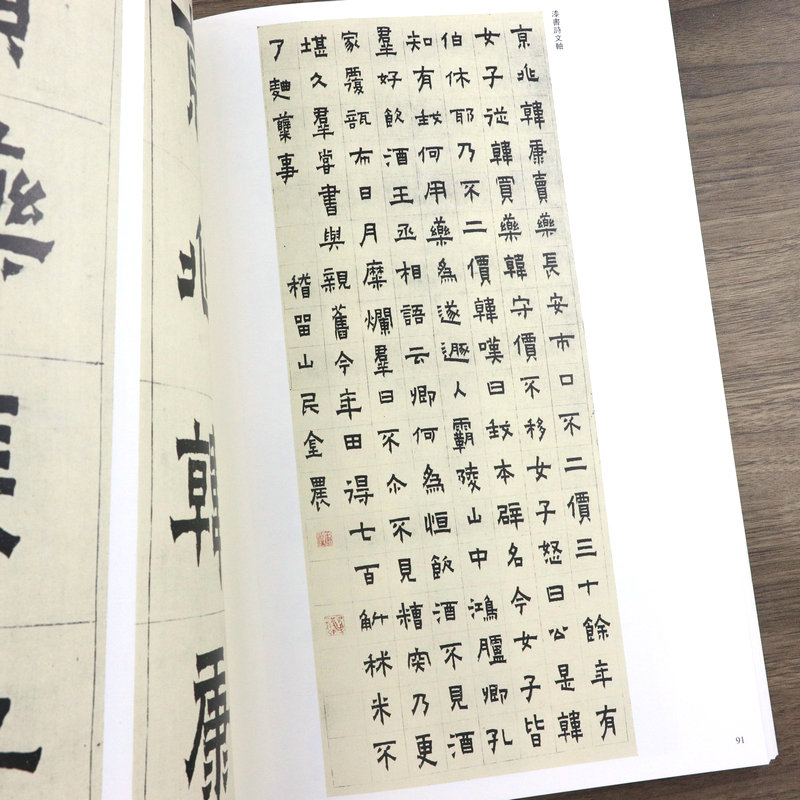 漆書詩文軸
京兆韓康賣藥長安市口不二價三十餘年有
女子從韓買藥韓守價不移女子怒曰公是韓
伯休耶乃不二價韓嘆曰我本辟名今女子皆
知有我何用藥為遂遯人霸陵山中鴻臚卿孔
羣好飲酒王丞相語云卿何為恒飲酒不見酒
家覆瓿布日月糜爛羣曰不尒不見糟突乃更
堪久羣嘗書與親舊今年田得七百斛秫米不
了麯糵事
稽留山民金農
兆韓康
91